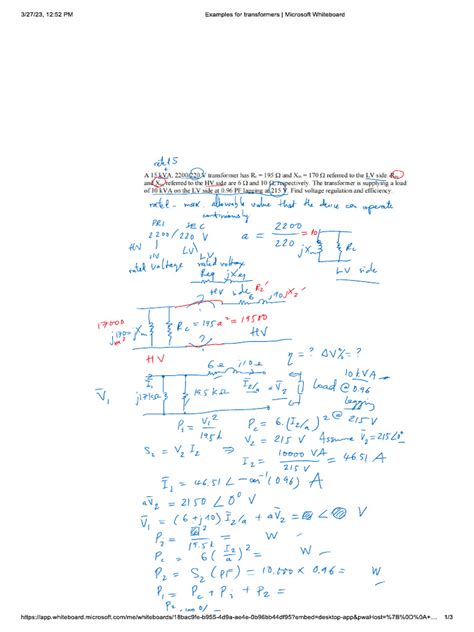 3/27/23, 12:52 PM
Examples for transformers | Microsoft Whiteboard
A 15 kVA. 2200/220 V transformer has Rc = 195 Ω and Xm = 170 Ω referred to the LV side.
and referred to the HV side are 6 Ω and 10 Ω, respectively. The transformer is supplying a load
of 10 kVA on the LV side at 0.96 PF lagging at 215 V. Find voltage regulation and efficiency.
rated - max. allowable value that the device can operate
continuously
PRI SEC
2200/220 V a = 2200/220 = 10
HV LV
rated voltage rated voltage
LV side
Req jXeq
HV side R2' jX2'
6 j10
17000
Rc = 195 a² = 19500
HV
HV
η = ? ΔV% = ?
6 Ω j10 Ω
10 kVA
V̄1 j17kΩ 19.5 kΩ Ī2/a aV̄2 Load @ 0.96
lagging
@ 215 V
Pc = 6.(I2/a)²
V2 = 215 V Assume V̄2 = 215∠0°
S2 = V2 I2 ⇒ I2 = 10000 VA / 215 V = 46.51 A
Ī2 = 46.51 ∠-cos⁻¹(0.96) A
aV̄2 = 2150 ∠0° V
V̄1 = (6+j10) Ī2/a + aV̄2 = ∠ V
= W
= 6( )² = W
P2 = S2 (PF) = 10.000 x 0.96 = W
https://app.whiteboard.microsoft.com/me/whiteboards/18bac9fe-b955-4d9a-ae4e-0b96bb44df95?embed=desktop-app&pwaHost=%7B%0D%0A+…
1/3